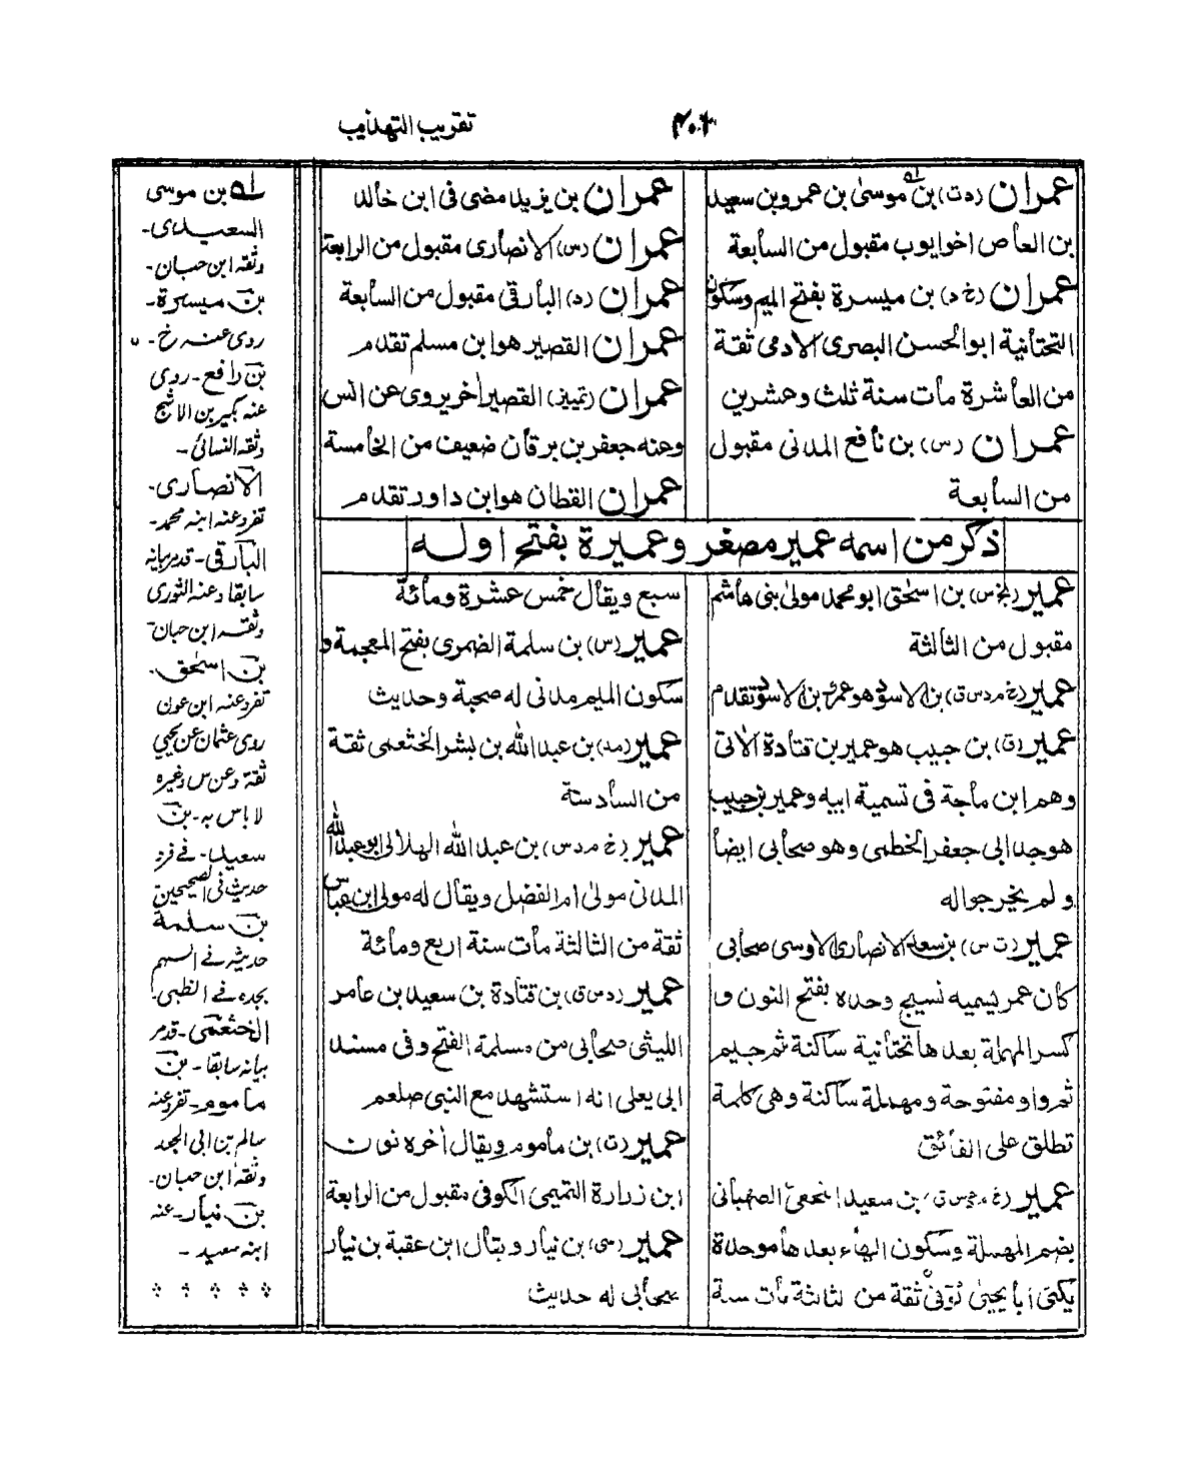 تقريب التهذيب
عمران (د ت) بن موسى بن عمرو بن سعيد
بن العاص اخو ايوب مقبول من السابعة
عمران (خ د) بن ميسرة بفتح الميم وسكون
التحتانية ابو الحسن البصرى الادمى ثقة
من العاشرة مات سنة ثلث وعشرين
عمران (س) بن نافع المدنى مقبول
من السابعة
عمران بن يزيد مضى فى ابن خالد
عمران (س) الانصارى مقبول من الرابعة
عمران (د) البارقى مقبول من السابعة
عمران القصير هو ابن مسلم تقدم
عمران (تمييز) القصير أخر يروى عن انس
وعنه جعفر بن برقان ضعيف من الخامسة
عمران القطان هو ابن داور تقدم
ذكر من اسمه عمير مصغر وعميرة بفتح اوله
عمير (بخ س) بن اسحٰق ابو محمد مولىٰ بنى هاشم
مقبول من الثالثة
عمير (خ م د س ق) بن الاسود هو عمرو بن الاسود تقدم
عمير (ق) بن حبيب هو عمير بن قتادة الاتى
وهم ابن ماجة فى تسمية ابيه وعمير بن حبيب
هو جد ابى جعفر الخطمى وهو صحابى ايضا
ولم يخرجوا له
عمير (ت س) بن سعد الانصارى الاوسى صحابى
كان عمر يسميه نسيج وحده بفتح النون و
كسر المهملة بعدها تحتانية ساكنة ثم جيم
ثم واو مفتوحة ومهملة ساكنة وهى كلمة
تطلق على الفائق
عمير بن سعيد النخعى الصهبانى
بضم المهملة وسكون الهاء بعدها موحدة
يكنى ابا يحيىٰ كوفى ثقة من الثالثة مات سنة
سبع ويقال خمس عشرة ومائة
عمير (س) بن سلمة الضمرى بفتح المعجمة و
سكون الميم مدنى له صحبة وحديث
عمير (مد) بن عبد الله بن بشر الخثعمى ثقة
من السادسة
عمير (خ م د س) بن عبد الله الهلالى ابو عبد الله
المدنى مولىٰ ام الفضل ويقال له مولى ابن عباس
ثقة من الثالثة مات سنة اربع ومائة
عمير (د س ق) بن قتادة بن سعيد بن عامر
الليثى صحابى من مسلمة الفتح وفى مسند
ابى يعلى انه استشهد مع النبى صلعم
عمير (ت) بن ماموم ويقال أخره نون
ابن زرارة التميمى الكوفى مقبول من الرابعة
عمير (سى) بن نيار ويقال ابن عقبة بن نيار
صحابى له حديث
لـه بن موسى
السعيدى-
وثقه ابن حبان-
بن ميسرة-
روى عنه خ-
بن نافع-روى
عنه بكير بن الاشج
وثقه النسائى-
الانصارى-
تفرد عنه ابنه محمد-
البارقى-قدم بيانه
سابقا وعنه الثورى
وثقه ابن حبان-
بن اسحٰق-
تفرد عنه ابن عون
روى عثمان عن يحيى
ثقة وعن س وغيره
لا باس به-بن
سعيد-له فرد
حديث فى الصحيحين
بن سلمة
حديثه فے السهم
بجده فے الظبى-
الخثعمى-قدم
بيانه سابقا-بن
ماموم-تفرد عنه
سالم بن ابى الجعد
وثقه ابن حبان-
بن نيار-عنه
ابنه سعيد-